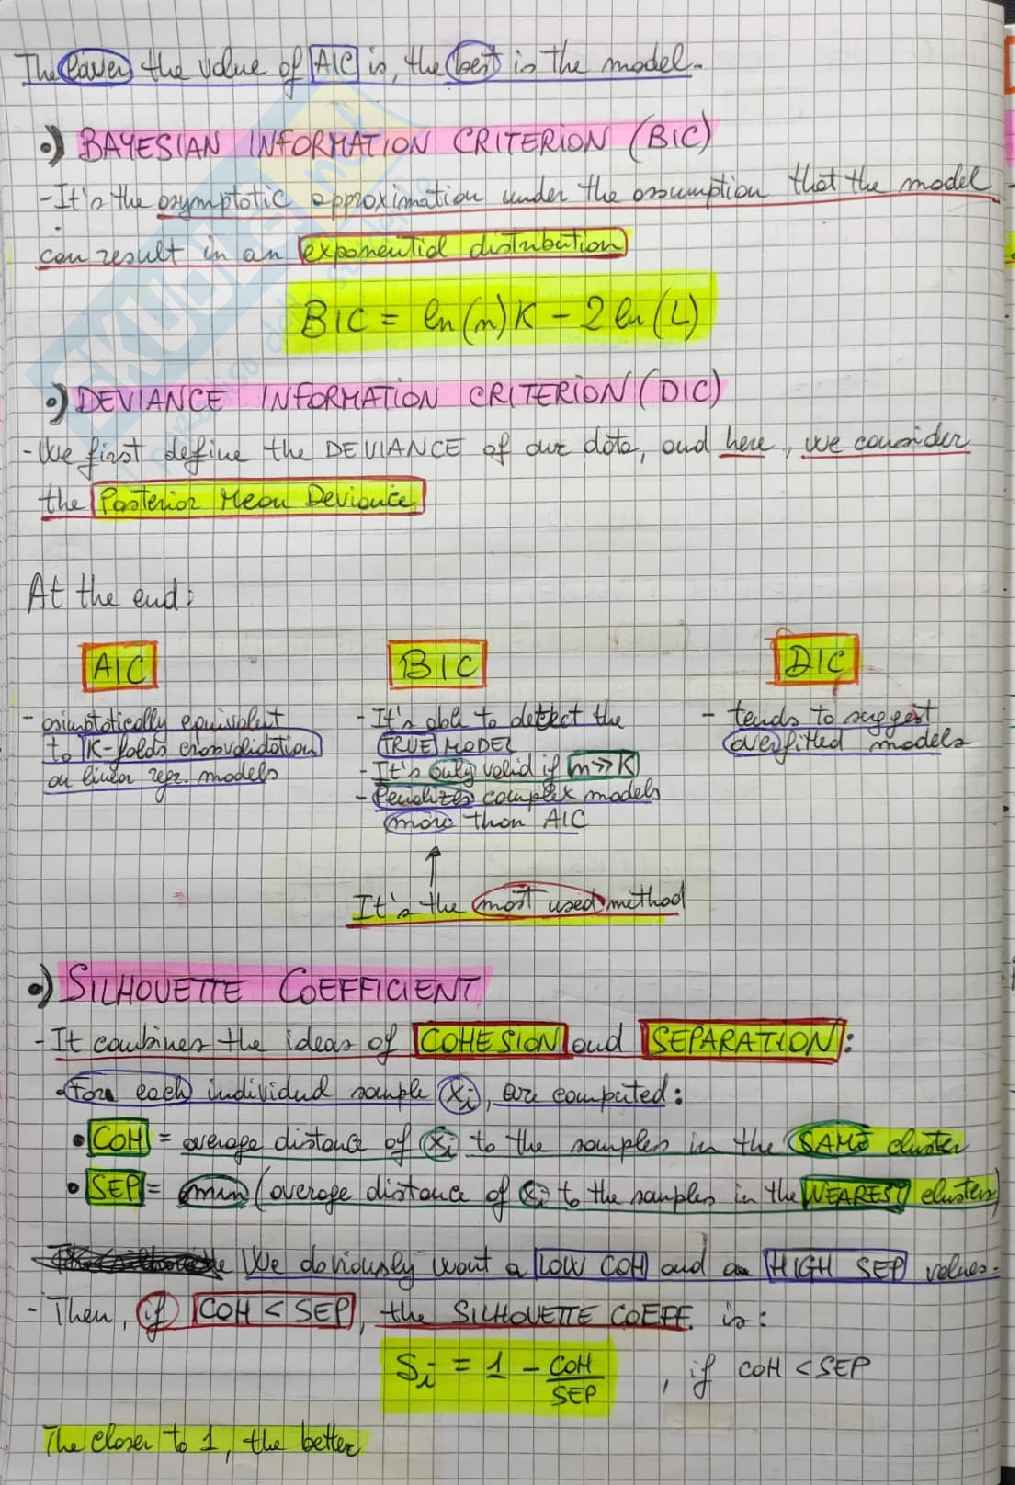 The lower the value of AIC is, the best is the model.
•) BAYESIAN INFORMATION CRITERION (BIC)
- It's the asymptotic approximation under the assumption that the model
can result in an exponential distribution
BIC = ln(n)K - 2 ln(L)
•) DEVIANCE INFORMATION CRITERION (DIC)
- We first define the DEVIANCE of our data, and here, we consider
the Posterior Mean Deviance
At the end:
AIC BIC DIC
- asimptotically equivalent
to K-folds crossvalidation
on linear regr. models
- It's able to detect the
TRUE MODEL
- It's only valid if n>>K
- Penalizes complex models
more than AIC
- tends to suggest
overfitted models
↑
It's the most used method
•) SILHOUETTE COEFFICIENT
- It combines the ideas of COHESION and SEPARATION:
• For each individual sample xi, are computed:
• COH = average distance of xi to the samples in the SAME cluster
• SEP = min (average distance of xi to the samples in the NEAREST clusters)
We obviously want a LOW COH and a HIGH SEP values.
- Then, if COH < SEP, the SILHOUETTE COEFF. is:
Si = 1 - COH/SEP , if COH < SEP
The closer to 1, the better